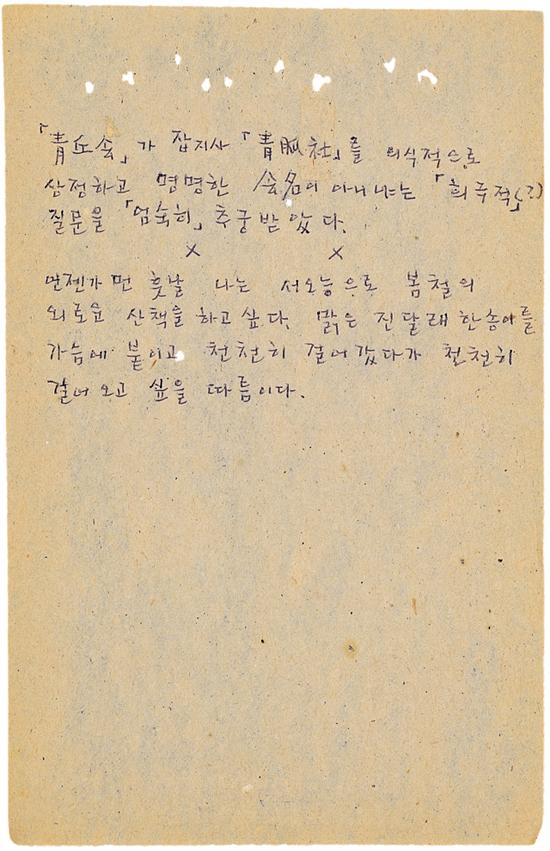 「靑丘会」가 잡지사 「靑脈社」를 의식적으로
상정하고 명명한 会名이 아니냐는 「희극적」(?)
질문을 「엄숙히」 추궁받았다.
× ×
언젠가 먼 훗날 나는 서오능으로 봄철의
외로운 산책을 하고 싶다. 맑은 진달래 한송이를
가슴에 붙이고 천천히 걸어갔다가 천천히
걸어 오고 싶을 따름이다.